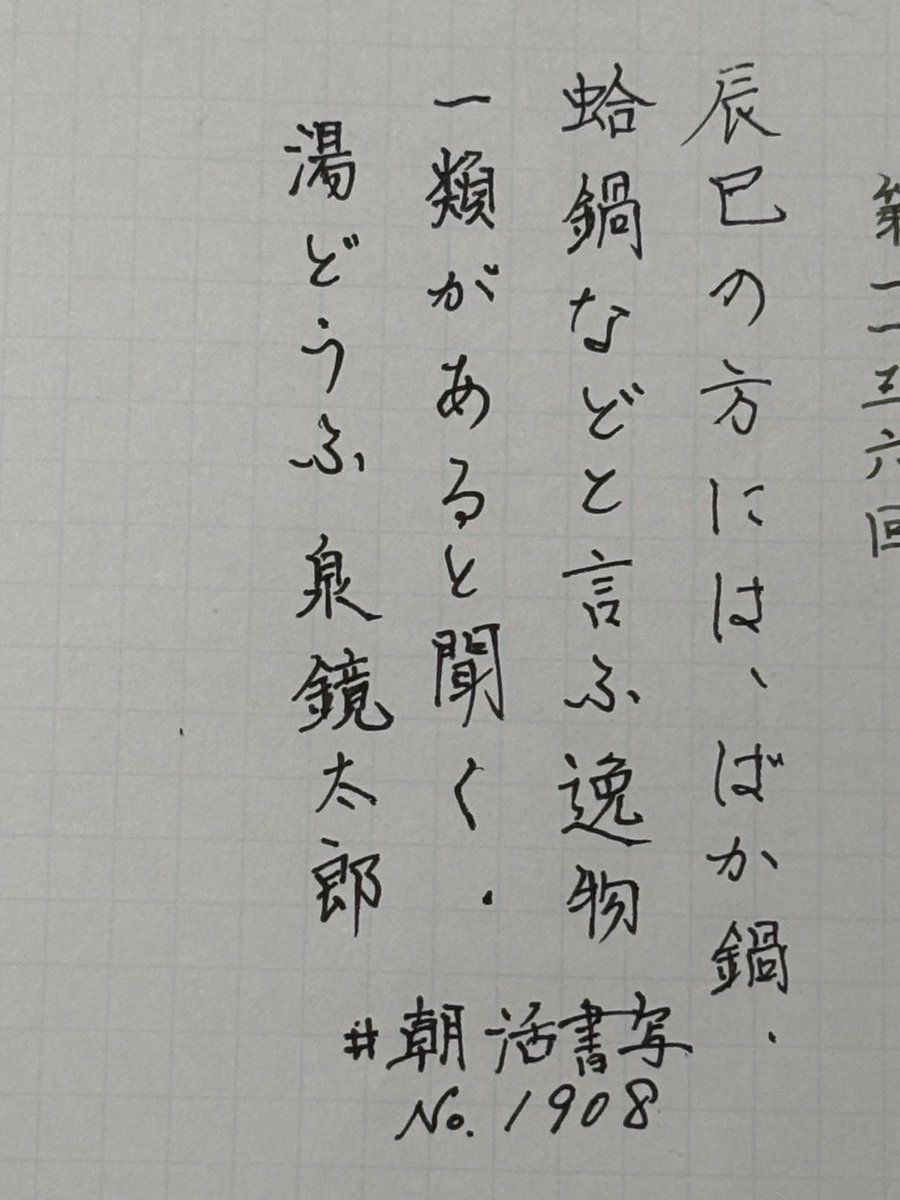 第一一五六回
辰巳の方には、ばか鍋.
蛤鍋などと言ふ逸物
一類があると聞く.
湯どうふ 泉鏡太郎
#朝活書写
No.1908